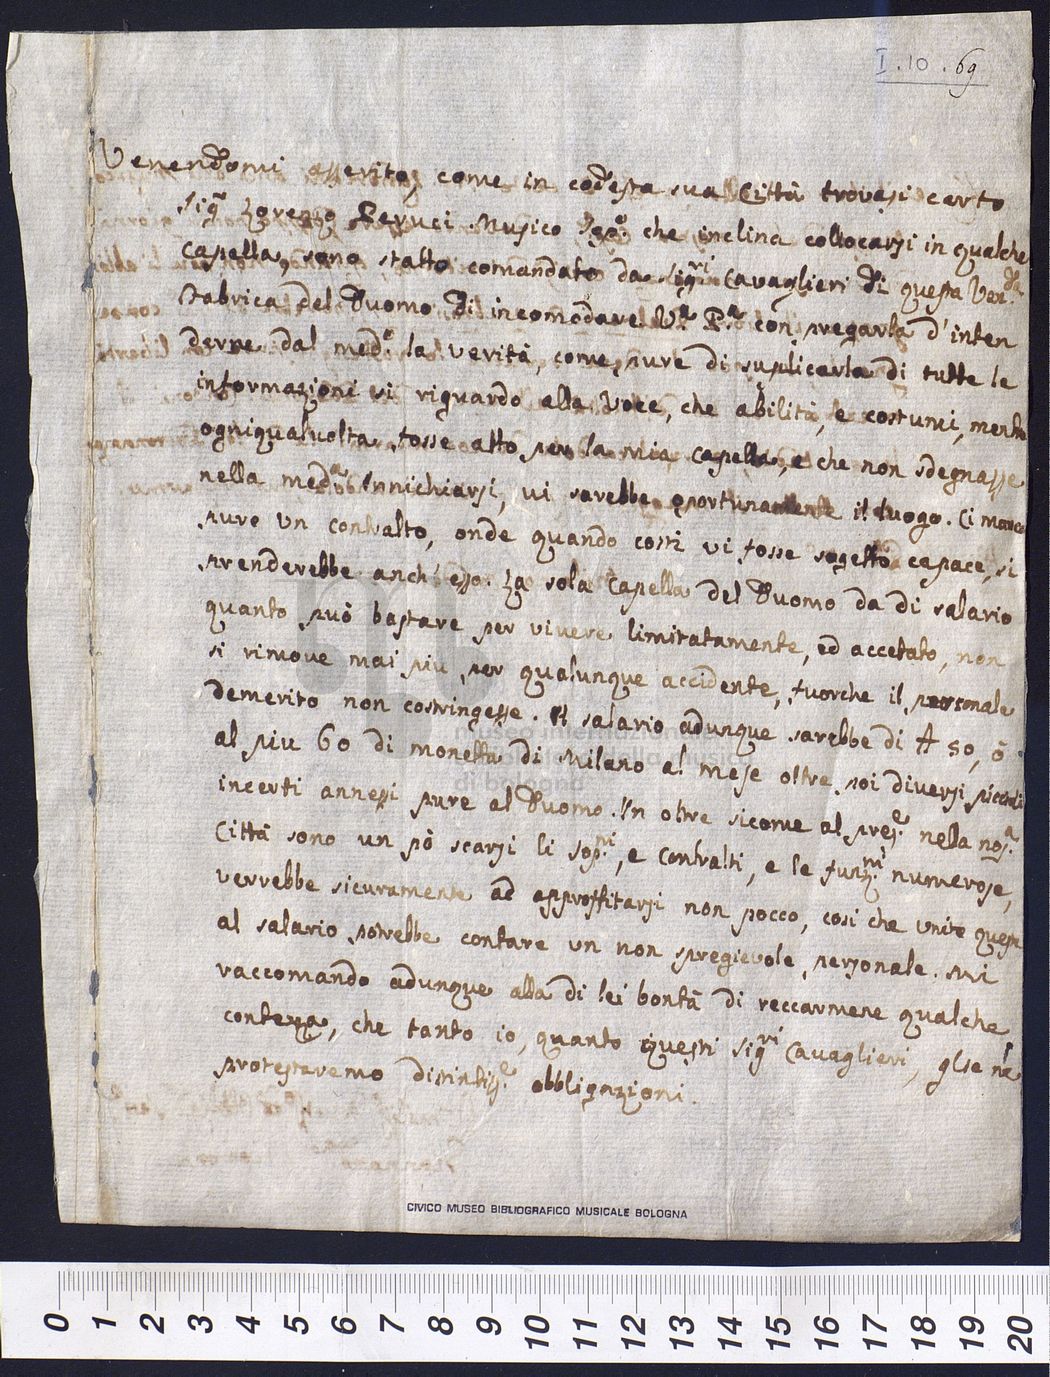 I.10.69
Venendomi asserito, come in codesta sua Città trovasi certo
Sig.r Lorenzo Peruci Musico Sop.o che inclina collocarsi in qualche
Capella, sono statto comandato da Sig.ri Cavaglieri di questa Ven.da
Fabrica del Duomo di incomodare V.a P.a con pregarla d'inten
derne dal med.o la verità, come pure di suplicarla di tutte le
informazioni vi riguardo alla Voce, che abilità, e costumi, mentre
ogniqualvolta fosse atto per la mia Capella, e che non sdegnasse
nella med.a Innichiarsi, vi sarebbe oportunamente il luogo. Ci manca
pure un contralto, onde quando costì vi fosse sogetto capace, si
prenderebbe anch'esso. La sola Capella del Duomo da di salario
quanto può bastare per vivere limitatamente, ed accetato, non
si rimove mai piu per qualunque accidente, fuorche il personale
demerito non costringesse. Il salario adunque sarebbe di 50, ò
al piu 60 di monetta di Milano al mese oltre poi diversi piccoli
incerti annessi pure al Duomo. In oltre sicome al pres.e nella nos.a
Città sono un pò scarsi li sop.ni, e contralti, e le funz.ni numerose,
verrebbe sicuramente ad approffitarsi non pocco, cosi che unite queste
al salario potrebbe contare un non spregievole personale. Mi
raccomando adunque alla di lei bontà di reccarmene qualche
contezza, che tanto io, quanto questi Sig.ri Cavaglieri, glse ne
protestaremo distintiss.e obbligazioni.
museo internazionale
e biblioteca della musica
di bologna
CIVICO MUSEO BIBLIOGRAFICO MUSICALE BOLOGNA
0 1 2 3 4 5 6 7 8 9 10 11 12 13 14 15 16 17 18 19 20